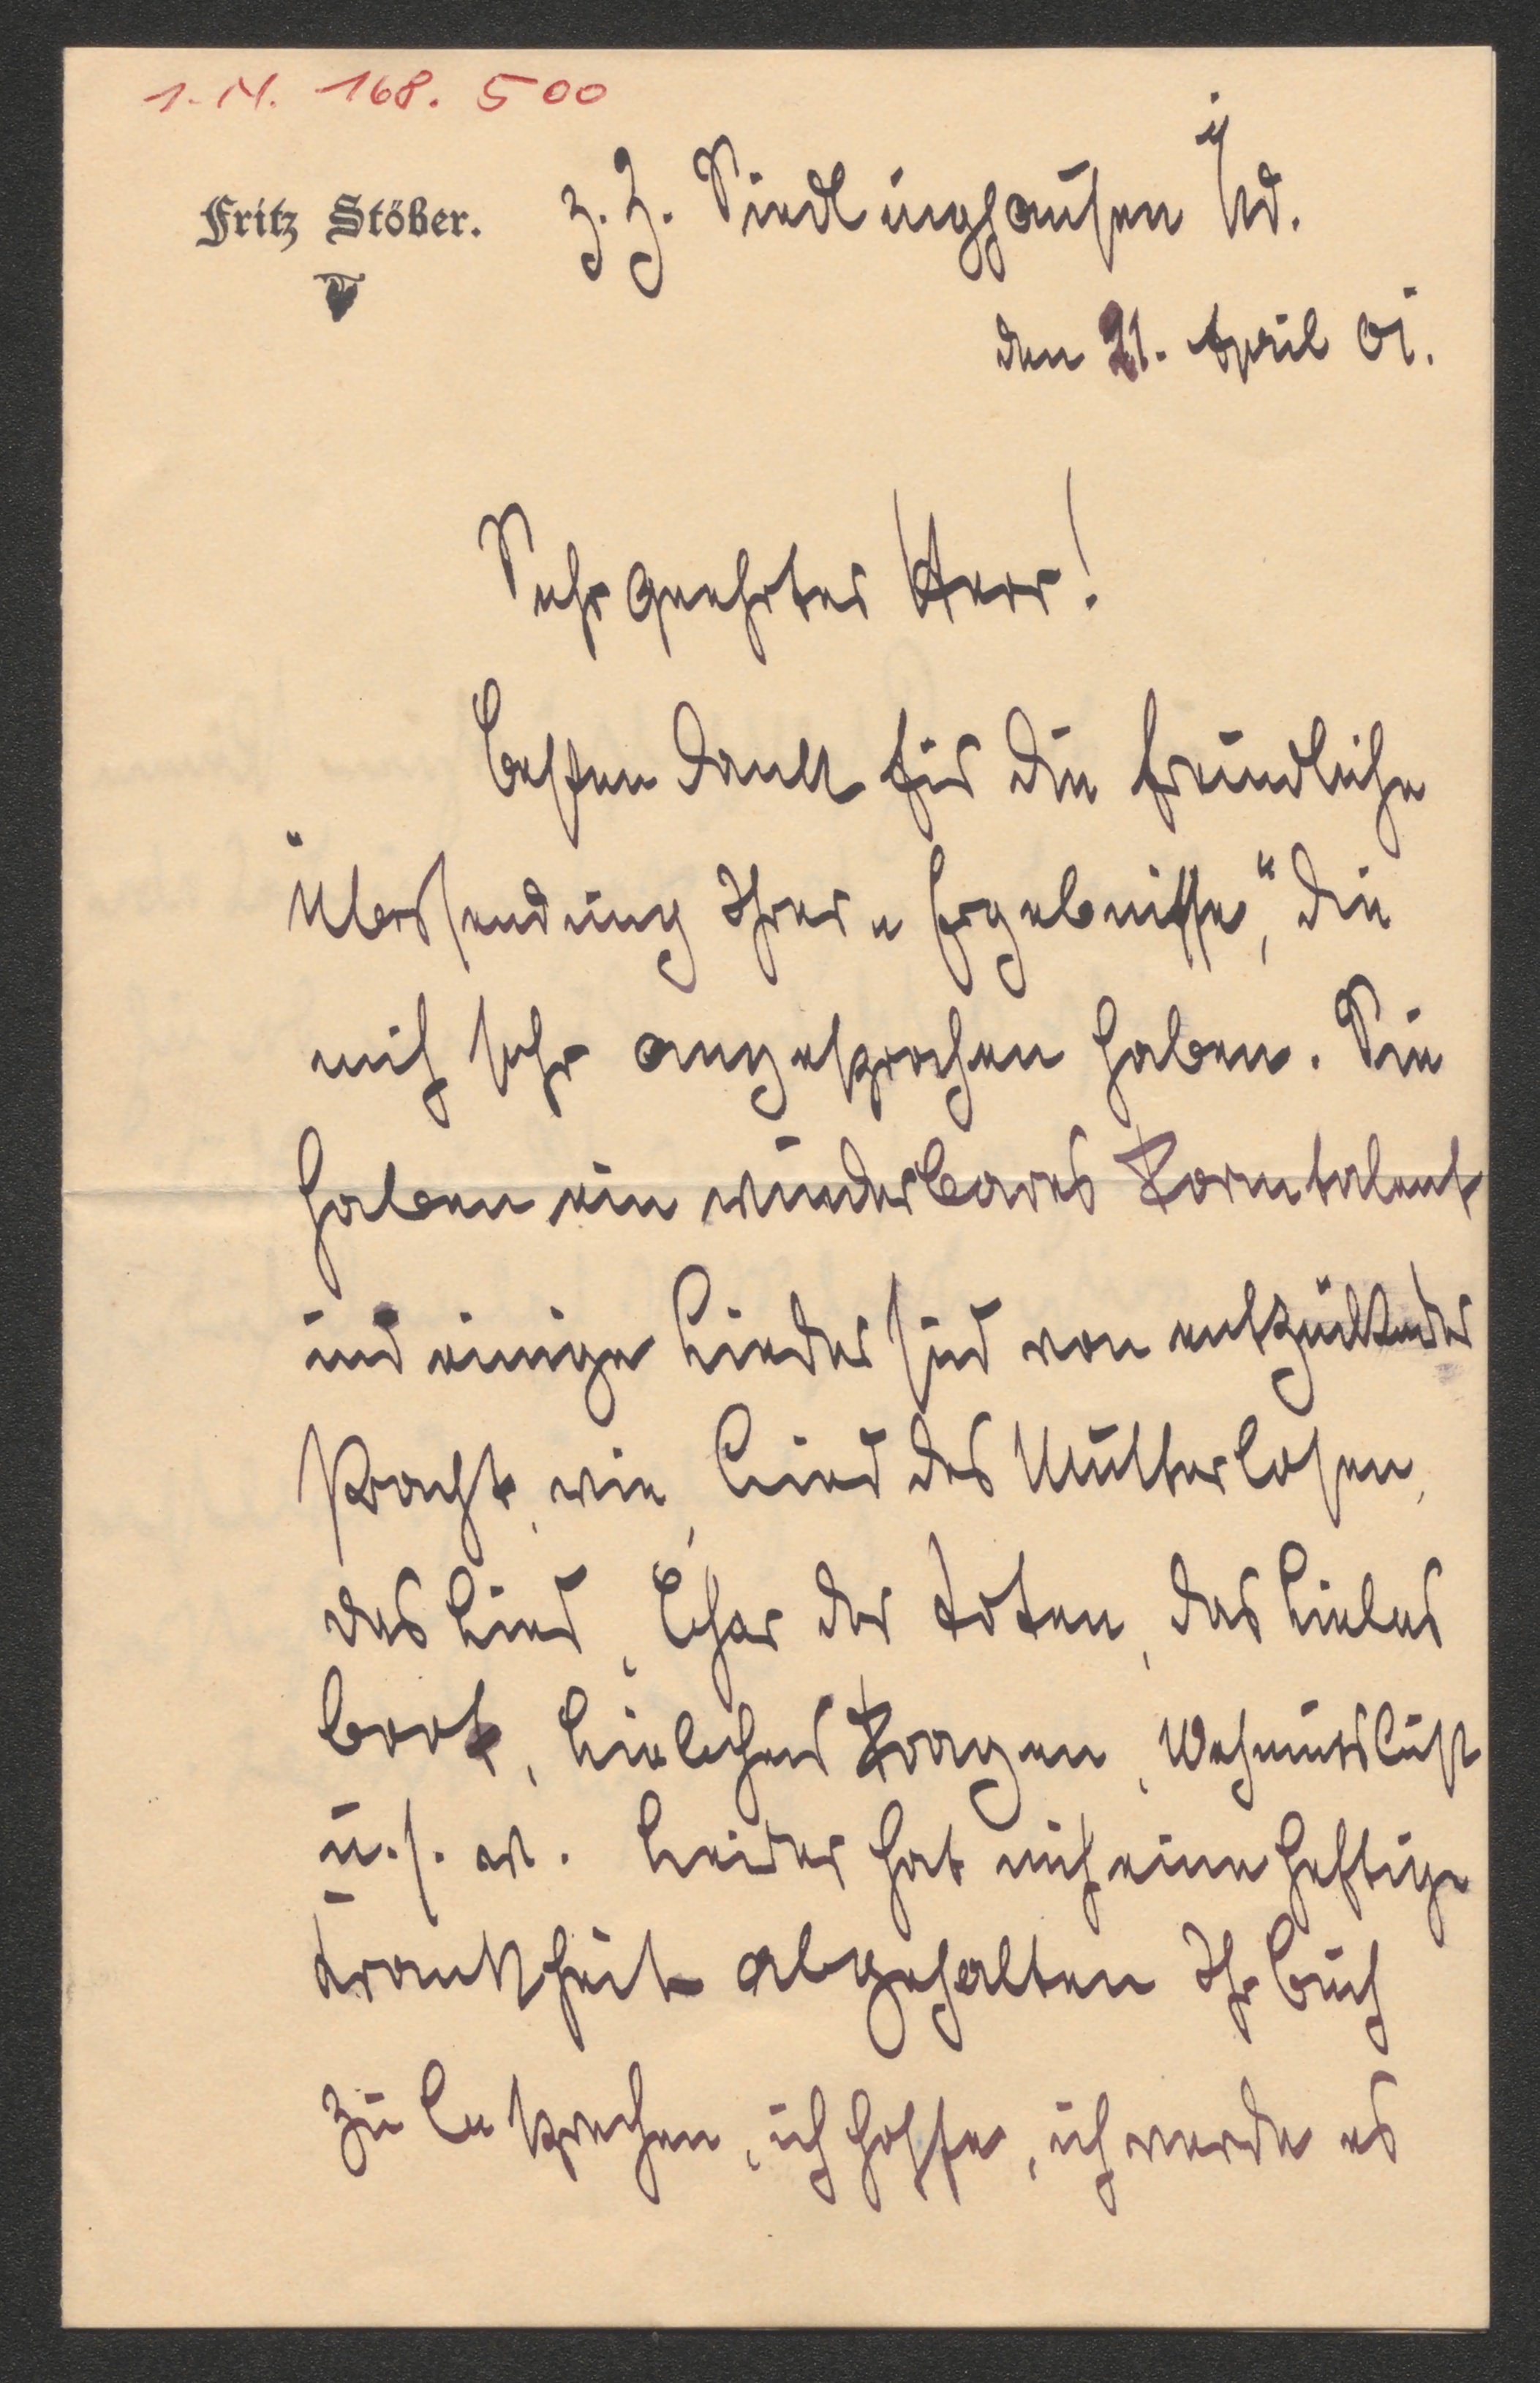 1.N. 168.500
Fritz Stöber.
z. Z. Siedlinghausen i/W.
den 21. April 01.
Sehr geehrter Herr!
Besten Dank für die freundliche
Übersendung Ihrer „Ergebnisse", die
mich sehr angesprochen haben. Sie
haben ein wunderbares Formtalent
und einige Lieder sind von entzückender
Pracht, wie, Lied des Mutterlosen,
das Lied, Chor der Toten, das Liebes
boot, Liebchens Fragen, Wehmutslust
u. s. w. Leider hat mich eine heftige
Krankheit abgehalten Ihr Buch
zu besprechen, ich hoffe, ich werde es